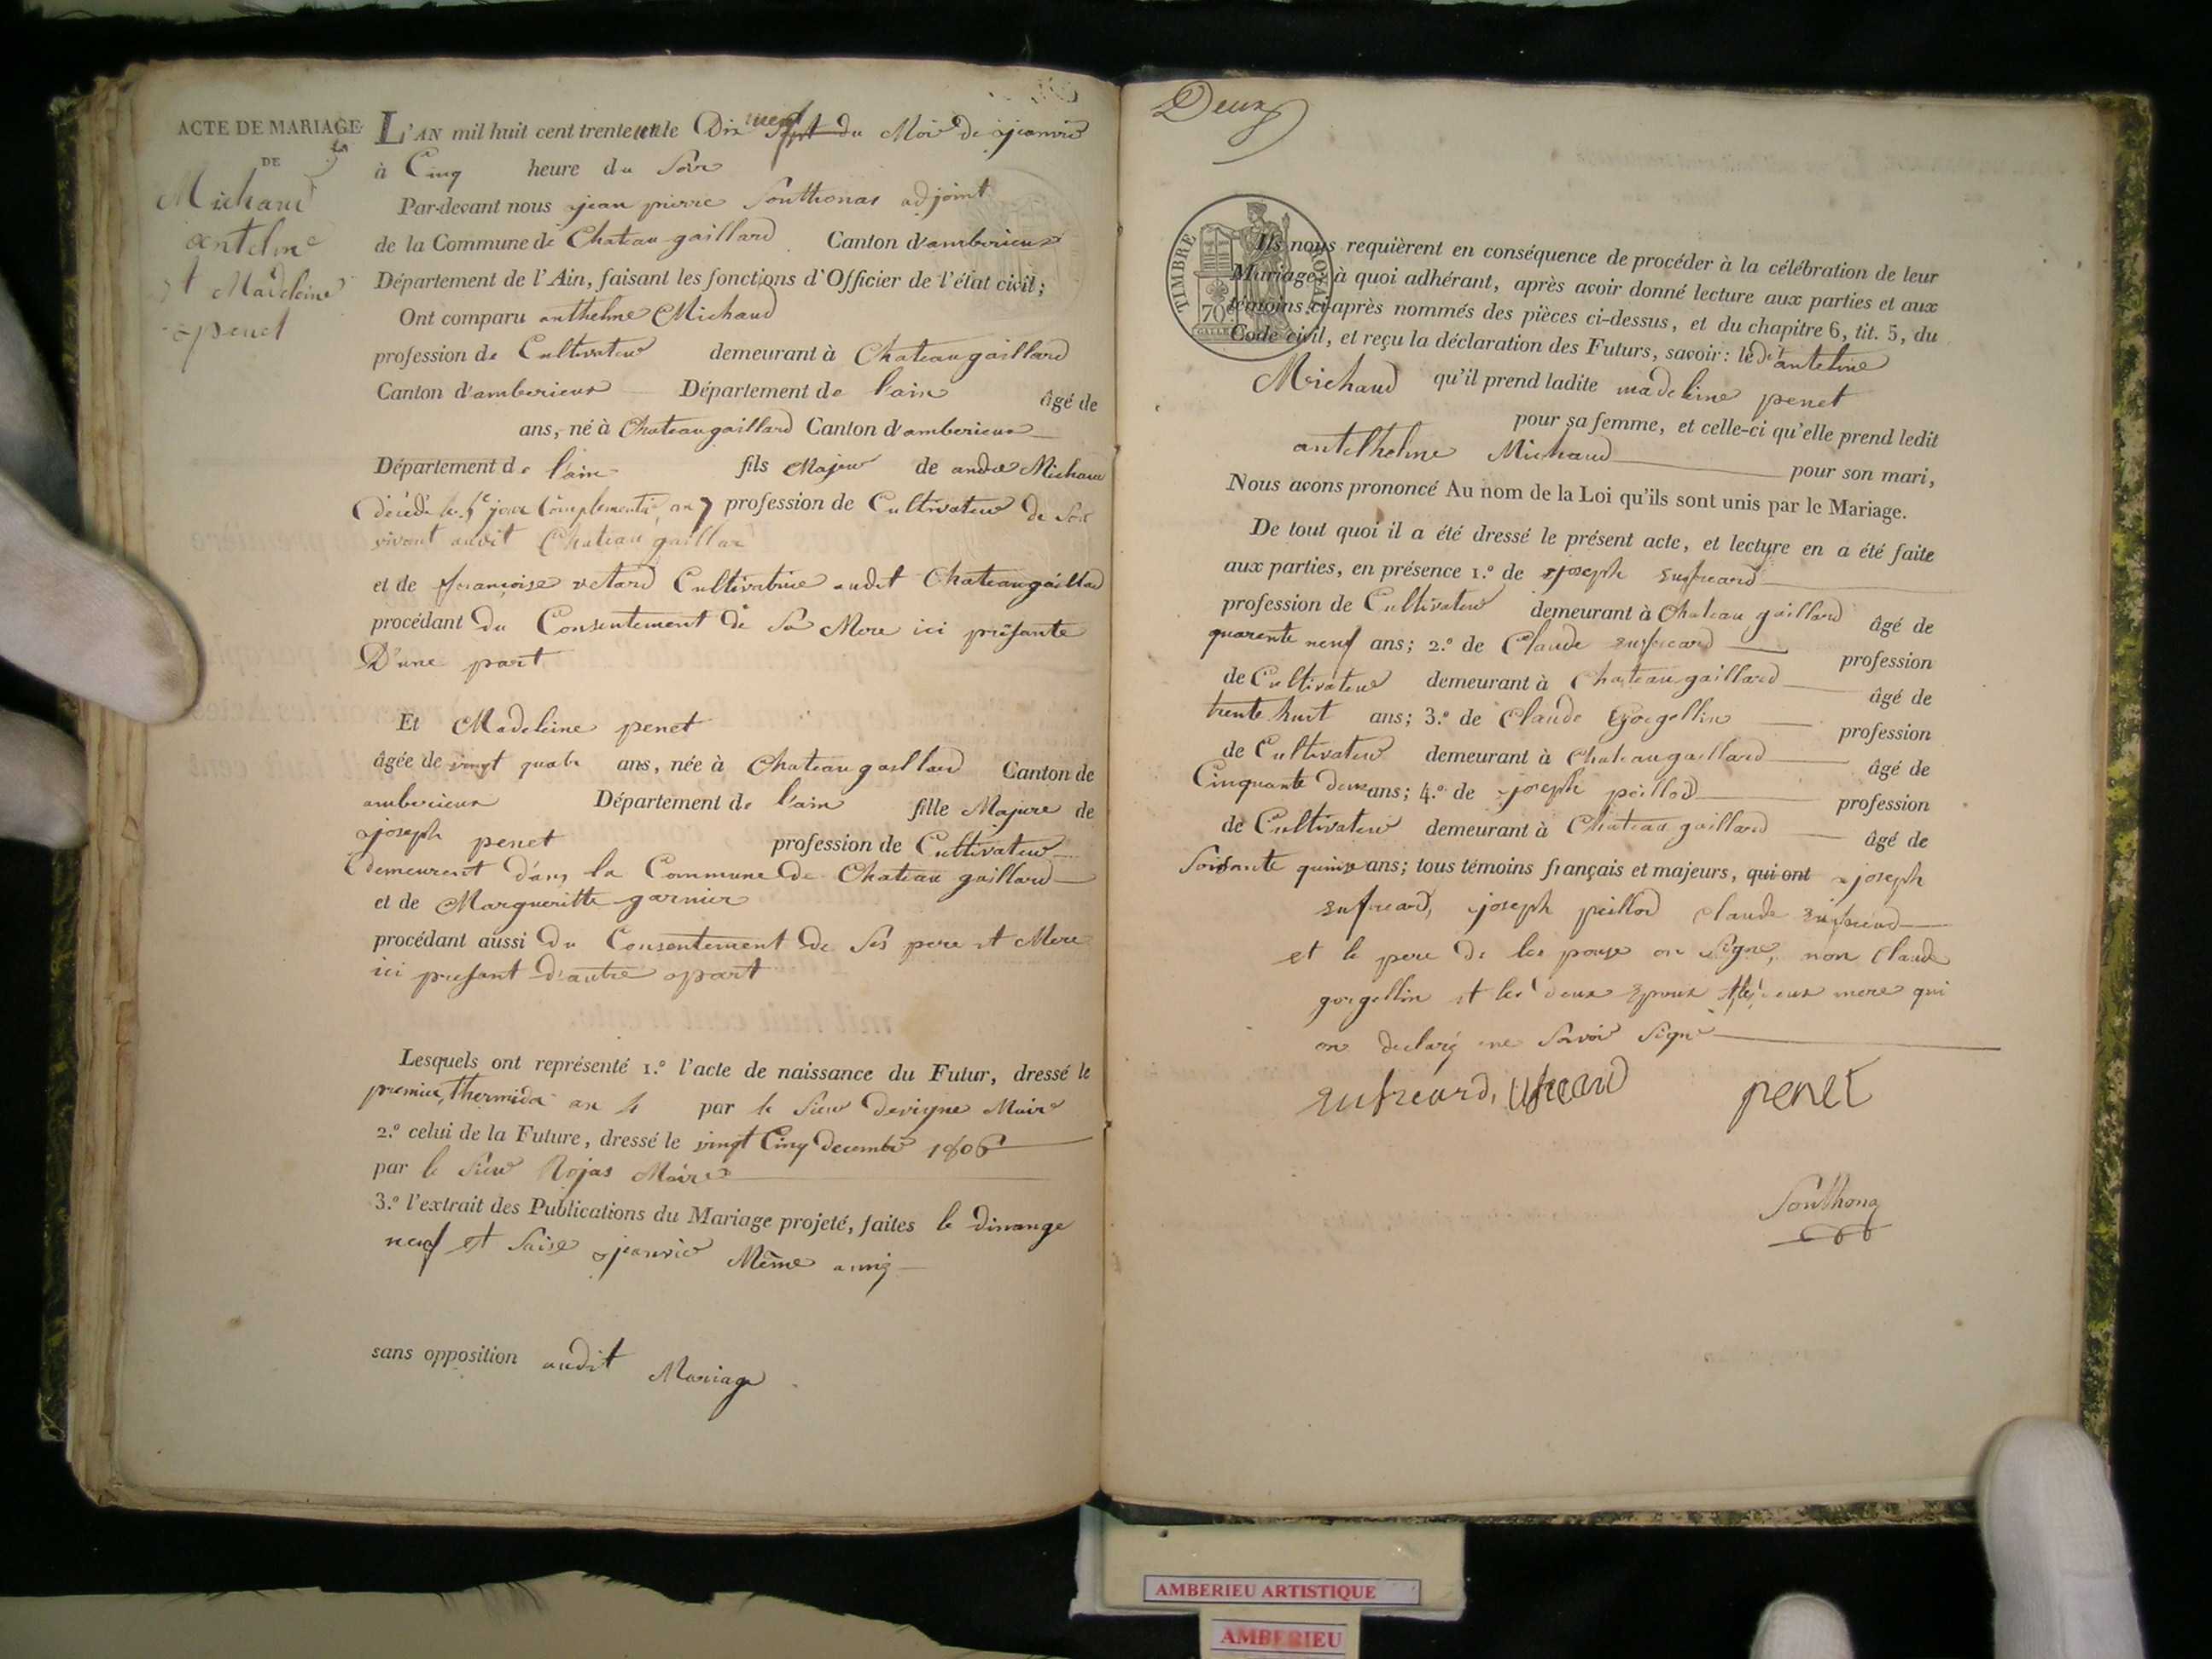 ACTE DE MARIAGE
DE
Michaud
antelme
et Madeleine
penet
L'AN mil huit cent trente et un le Dix neuf sept du Mois de janvier
à Cinq heure du Soir
Par-devant nous jean pierre Southonas adjoint
de la Commune de Chateau gaillard Canton d'amberieux
Département de l'Ain, faisant les fonctions d'Officier de l'état civil;
Ont comparu anthelme Michaud
profession de Cultivateur demeurant à Chateaugaillard
Canton d'amberieux Département de l'ain âgé de
ans, né à Chateaugaillard Canton d'amberieux
Département de l'ain fils Majeur de andré Michaud
décédé le 5e jour Complementaire an 7 profession de Cultivateur de Son
vivant audit Chateau gaillar
et de françoise vetard Cultivatrice audit Chateaugaillard
procédant du Consentement de Sa Mere ici présante
D'une part
Et Madeleine penet
âgée de vingt quatre ans, née à Chateaugaillard Canton de
amberieux Département de l'ain fille Majure de
joseph penet profession de Cultivateur
demeurent dans la Commune de Chateau gaillard
et de Margueritte garnier
procédant aussi du Consentement de Ses pere et Mere
ici présant d'autre part
Lesquels ont représenté 1.º l'acte de naissance du Futur, dressé le
premier Thermidor an 4 par le Sieur devigne Maire
2.º celui de la Future, dressé le vingt Cinq decembre 1806
par le Sieur Rojas Maire
3.º l'extrait des Publications du Mariage projeté, faites le dimange
neuf et Saise janvier Même anné
sans opposition audit Mariage
Deux
TIMBRE ROYAL
70
Ils nous requièrent en conséquence de procéder à la célébration de leur
Mariage; à quoi adhérant, après avoir donné lecture aux parties et aux
témoins ci-après nommés des pièces ci-dessus, et du chapitre 6, tit. 5, du
Code civil, et reçu la déclaration des Futurs, savoir: le dit antelme
Michaud qu'il prend ladite madeleine penet
pour sa femme, et celle-ci qu'elle prend ledit
antelhelme Michaud pour son mari,
Nous avons prononcé Au nom de la Loi qu'ils sont unis par le Mariage.
De tout quoi il a été dressé le présent acte, et lecture en a été faite
aux parties, en présence 1.º de joseph Eufreard
profession de Cultivateur demeurant à Chateau gaillard âgé de
quarente neuf ans; 2.º de Claude Eufreard profession
de Cultivateur demeurant à Chateau gaillard âgé de
trente huit ans; 3.º de Claude Gorgellin profession
de Cultivateur demeurant à Chateaugaillard âgé de
Cinquante deux ans; 4.º de joseph peillod profession
de Cultivateur demeurant à Chateau gaillard âgé de
Soixante quinze ans; tous témoins français et majeurs, qui ont joseph
Eufreard, joseph peillod Claude Eufreard
et le pere de les pouse on Signe, non Claude
gorgellin et les deux Epoux et les deux mere qui
on declaré ne Savoir Signé
Eufreard, Ufreard penet
Southona
AMBERIEU ARTISTIQUE
AMBERIEU